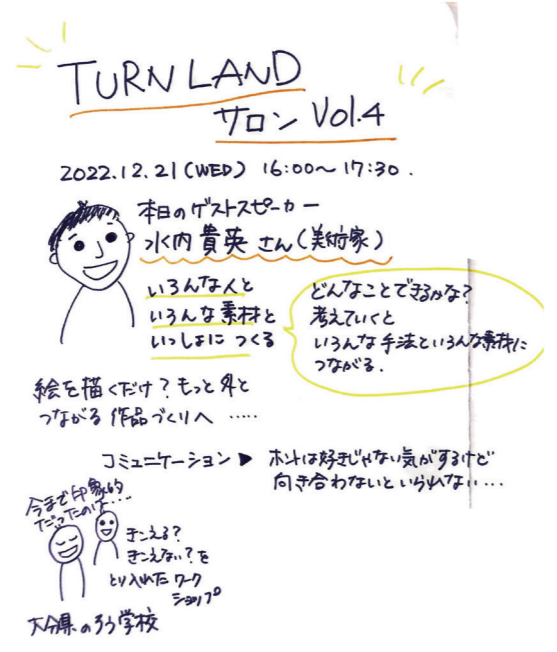 TURN LAND
サロン Vol.4
2022.12.21(WED) 16:00〜17:30.
本日のゲストスピーカー
水内貴英さん(美術家)
いろんな人と
いろんな素材と
いっしょに つくる
どんなことできるかな?
考えていくと
いろんな手法といろんな素材に
つながる.
絵を描くだけ?もっと外と
つながる作品づくりへ ……
コミュニケーション ▶ ホントは好きじゃない気がするけど
向き合わないといられない…
今まで印象的
だったのは…
きこえる?
きこえない?を
とり入れた ワーク
ショップ
大分県のろう学校